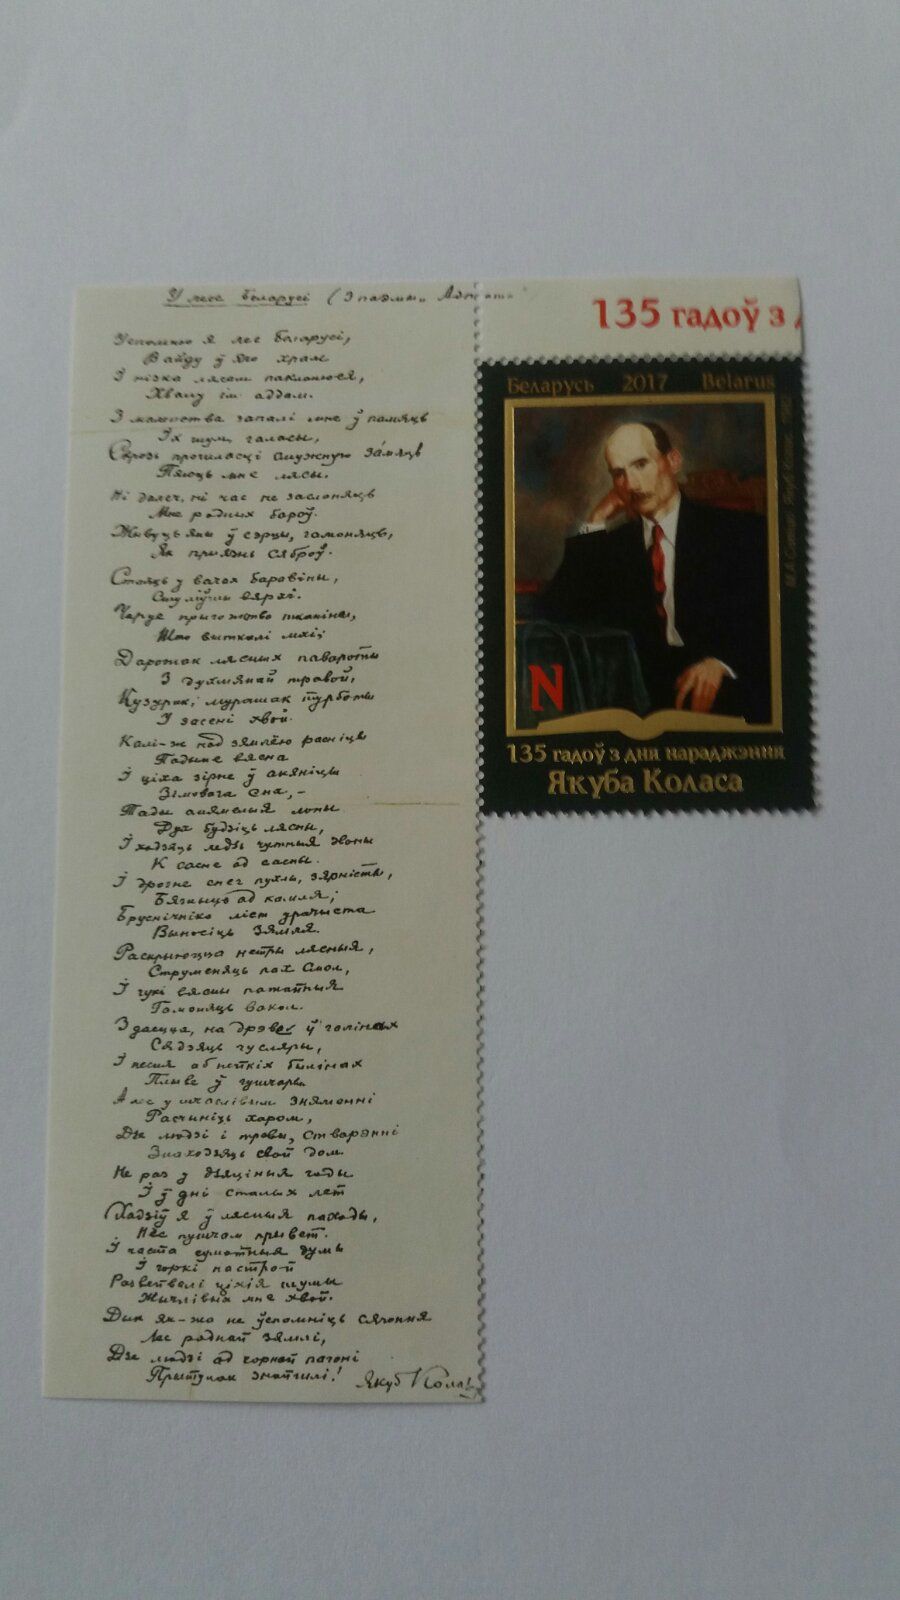 У лесе беларусі (З паэмы
Успомню я лес беларусі,
Вайду ў яго храм
І нізка лясам пакланюся,
Хвалу ім аддам.
З маленства запалі мне ў памяць
Іх шум, галасы,
Скрозь прочиласці смужную замяць
Пяюць мне лясы.
Ні далеч, ні час не заслоняць
Мне родных бароў.
Жывуць яны ў сэрцы, гамоняць,
Як прыязнь сяброў.
Стаяць у вачах баравіны,
вярхі.
Чаруе прыгожство тканіны,
Што выткалі мхі;
Дарожак лясных павароты
З духмянай травой,
Кузурак, мурашак турботы
У засені хвой.
Калі-ж над зямлёю расніцы
Падыме вясна
І ціха зірне ў аканіцы
Зімовага сна,–
Тады анямелыя
Дух будзіць лясны,
І ходзяць ледзь чутныя звоны
К сасне ад сасны.
І дрогне снег пухлы, зярністы,
Бягчы ад камля;
Бруснічніка ліст урачыста
Выносіць зямля.
Раскрыюцца нетры лясныя,
Струменяць пах смол,
І гукі вясны
Гамоняць вакол.
Здаецца, на дрэвах ў галінах
Сядзяць гусляры,
І песня аб нейкіх былінах
Плыве ў гушчары.
А лес у шчаслівым знямонні
Расчыніць харом,
Дзе людзі і травы, стварэнні
Знаходзяць свой дом.
Не раз у дзяціныя годы
І ў дні сталых лет
Хадзіў я ў лясныя паходы,
Нёс пушчам прывет.
І часта сумотныя думы
І горкі настрой
Развейвалі ціхія шумы
Жычлівых мне хвой.
Дык як-жо не ўспомніць сягоння
Лес роднай зямлі,
Дзе людзі ад чорнай пагоні
Прытулак знайшлі!
Якуб Колас
135 гадоў з
Беларусь 2017 Belarus
N
135 гадоў з дня нараджэння
Якуба Коласа